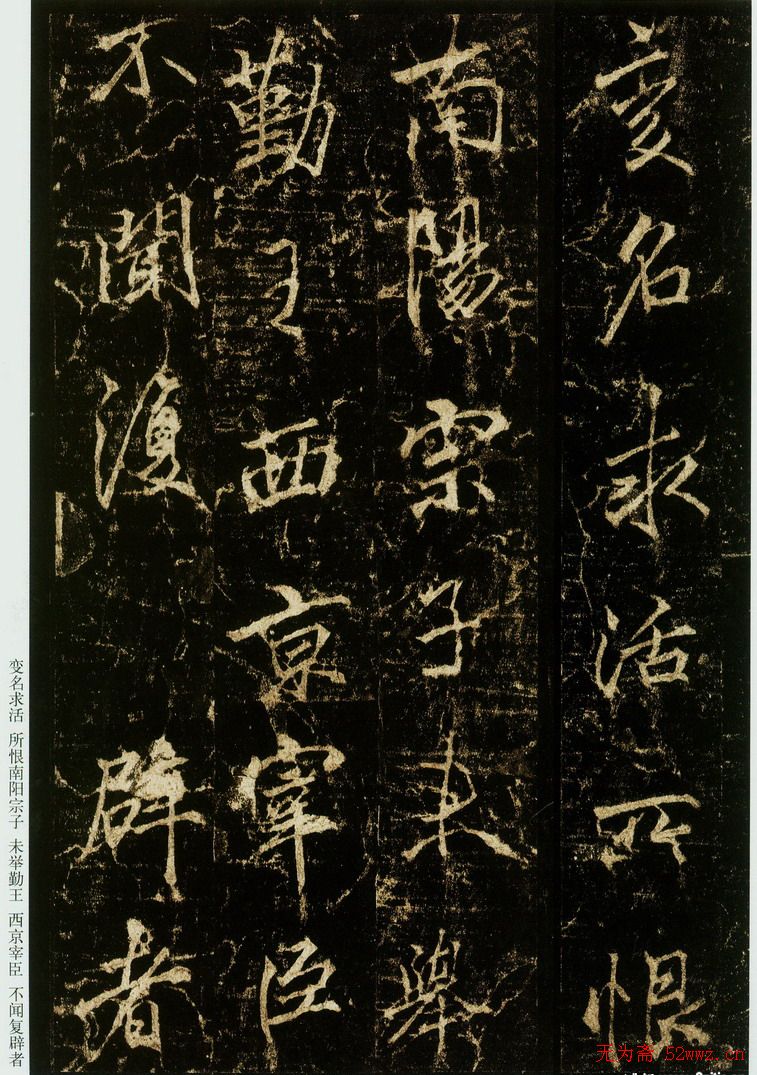 变名求活所恨
南陽宗子未舉
勤王西京宰臣
不聞復辟者
变名求活 所恨南阳宗子 未举勤王 西京宰臣 不闻复辟者
无为斋 52wwz.cn